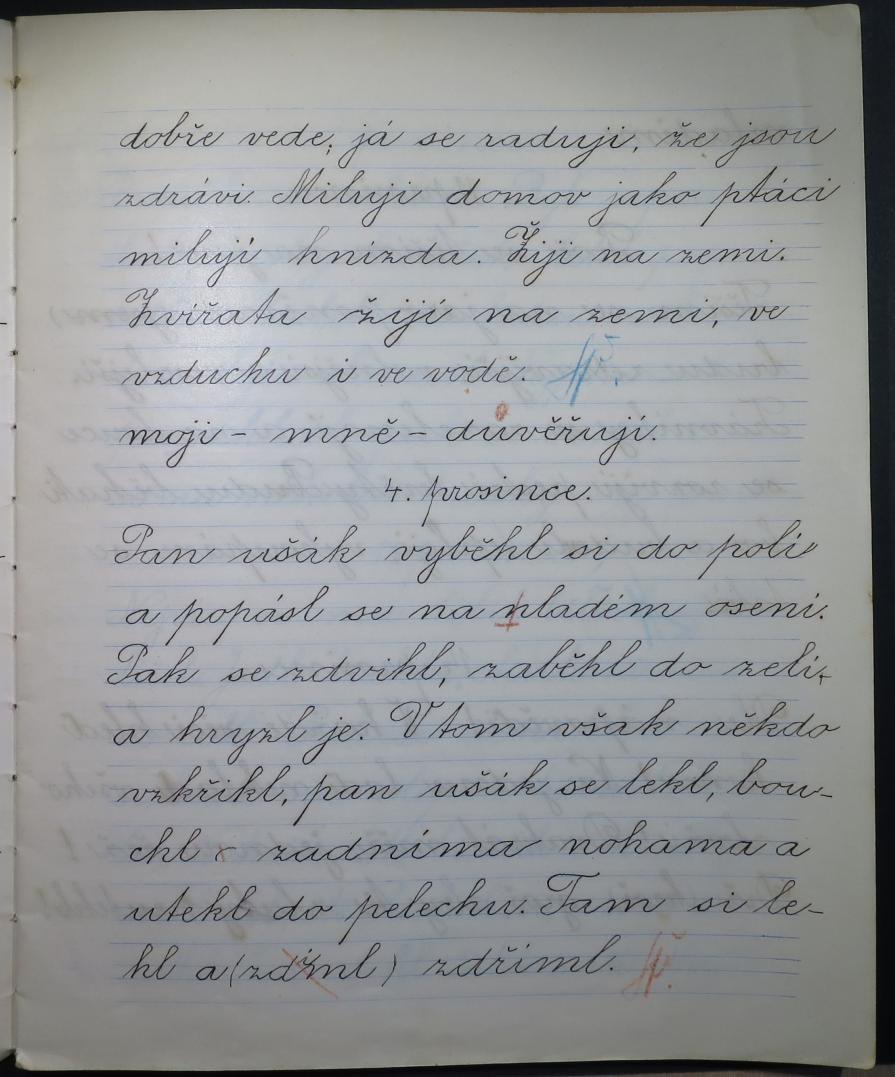 dobře vede; já se raduji, že jsou
zdrávi. Miluji domov jako ptáci
milují hnízda. Žiji na zemi.
Zvířata žijí na zemi, ve
vzduchu i ve vodě.
moji – mně – duvěřují.
4. prosince.
Pan ušák vyběhl si do polí
a popásl se na mladém osení.
Pak se zdvihl, zaběhl do zelí,
a hryzl je. V tom však někdo
vzkřikl, pan ušák se lekl, bou-
chl zadníma nohama a
utekl do pelechu. Tam si le-
hl a (zdřml) zdříml.